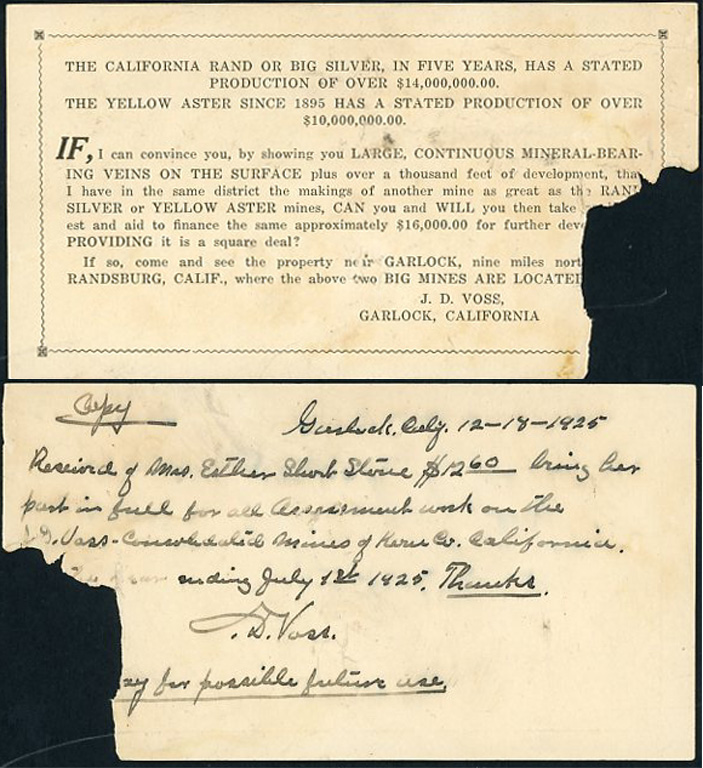 THE CALIFORNIA RAND OR BIG SILVER, IN FIVE YEARS, HAS A STATED
PRODUCTION OF OVER $14,000,000.00.
THE YELLOW ASTER SINCE 1895 HAS A STATED PRODUCTION OF OVER
$10,000,000.00.
IF, I can convince you, by showing you LARGE, CONTINUOUS MINERAL-BEAR-
ING VEINS ON THE SURFACE plus over a thousand feet of development, tha
I have in the same district the makings of another mine as great as the RAN
SILVER or YELLOW ASTER mines, CAN you and WILL you then take
est and aid to finance the same approximately $16,000.00 for further dev
PROVIDING it is a square deal?
If so, come and see the property near GARLOCK, nine miles nort
RANDSBURG, CALIF., where the above two BIG MINES ARE LOCATED
J. D. VOSS,
GARLOCK, CALIFORNIA
Copy
Garlock, Calif. 12-18-1925
Received of Mrs. Esther Short Stone $12 60 being her
part in full for all Assessment work on the
J.D. Voss-Consolidated Mines of Kern Co. California.
ending July 1st 1925. Thanks.
J.D. Voss.
for possible future use.